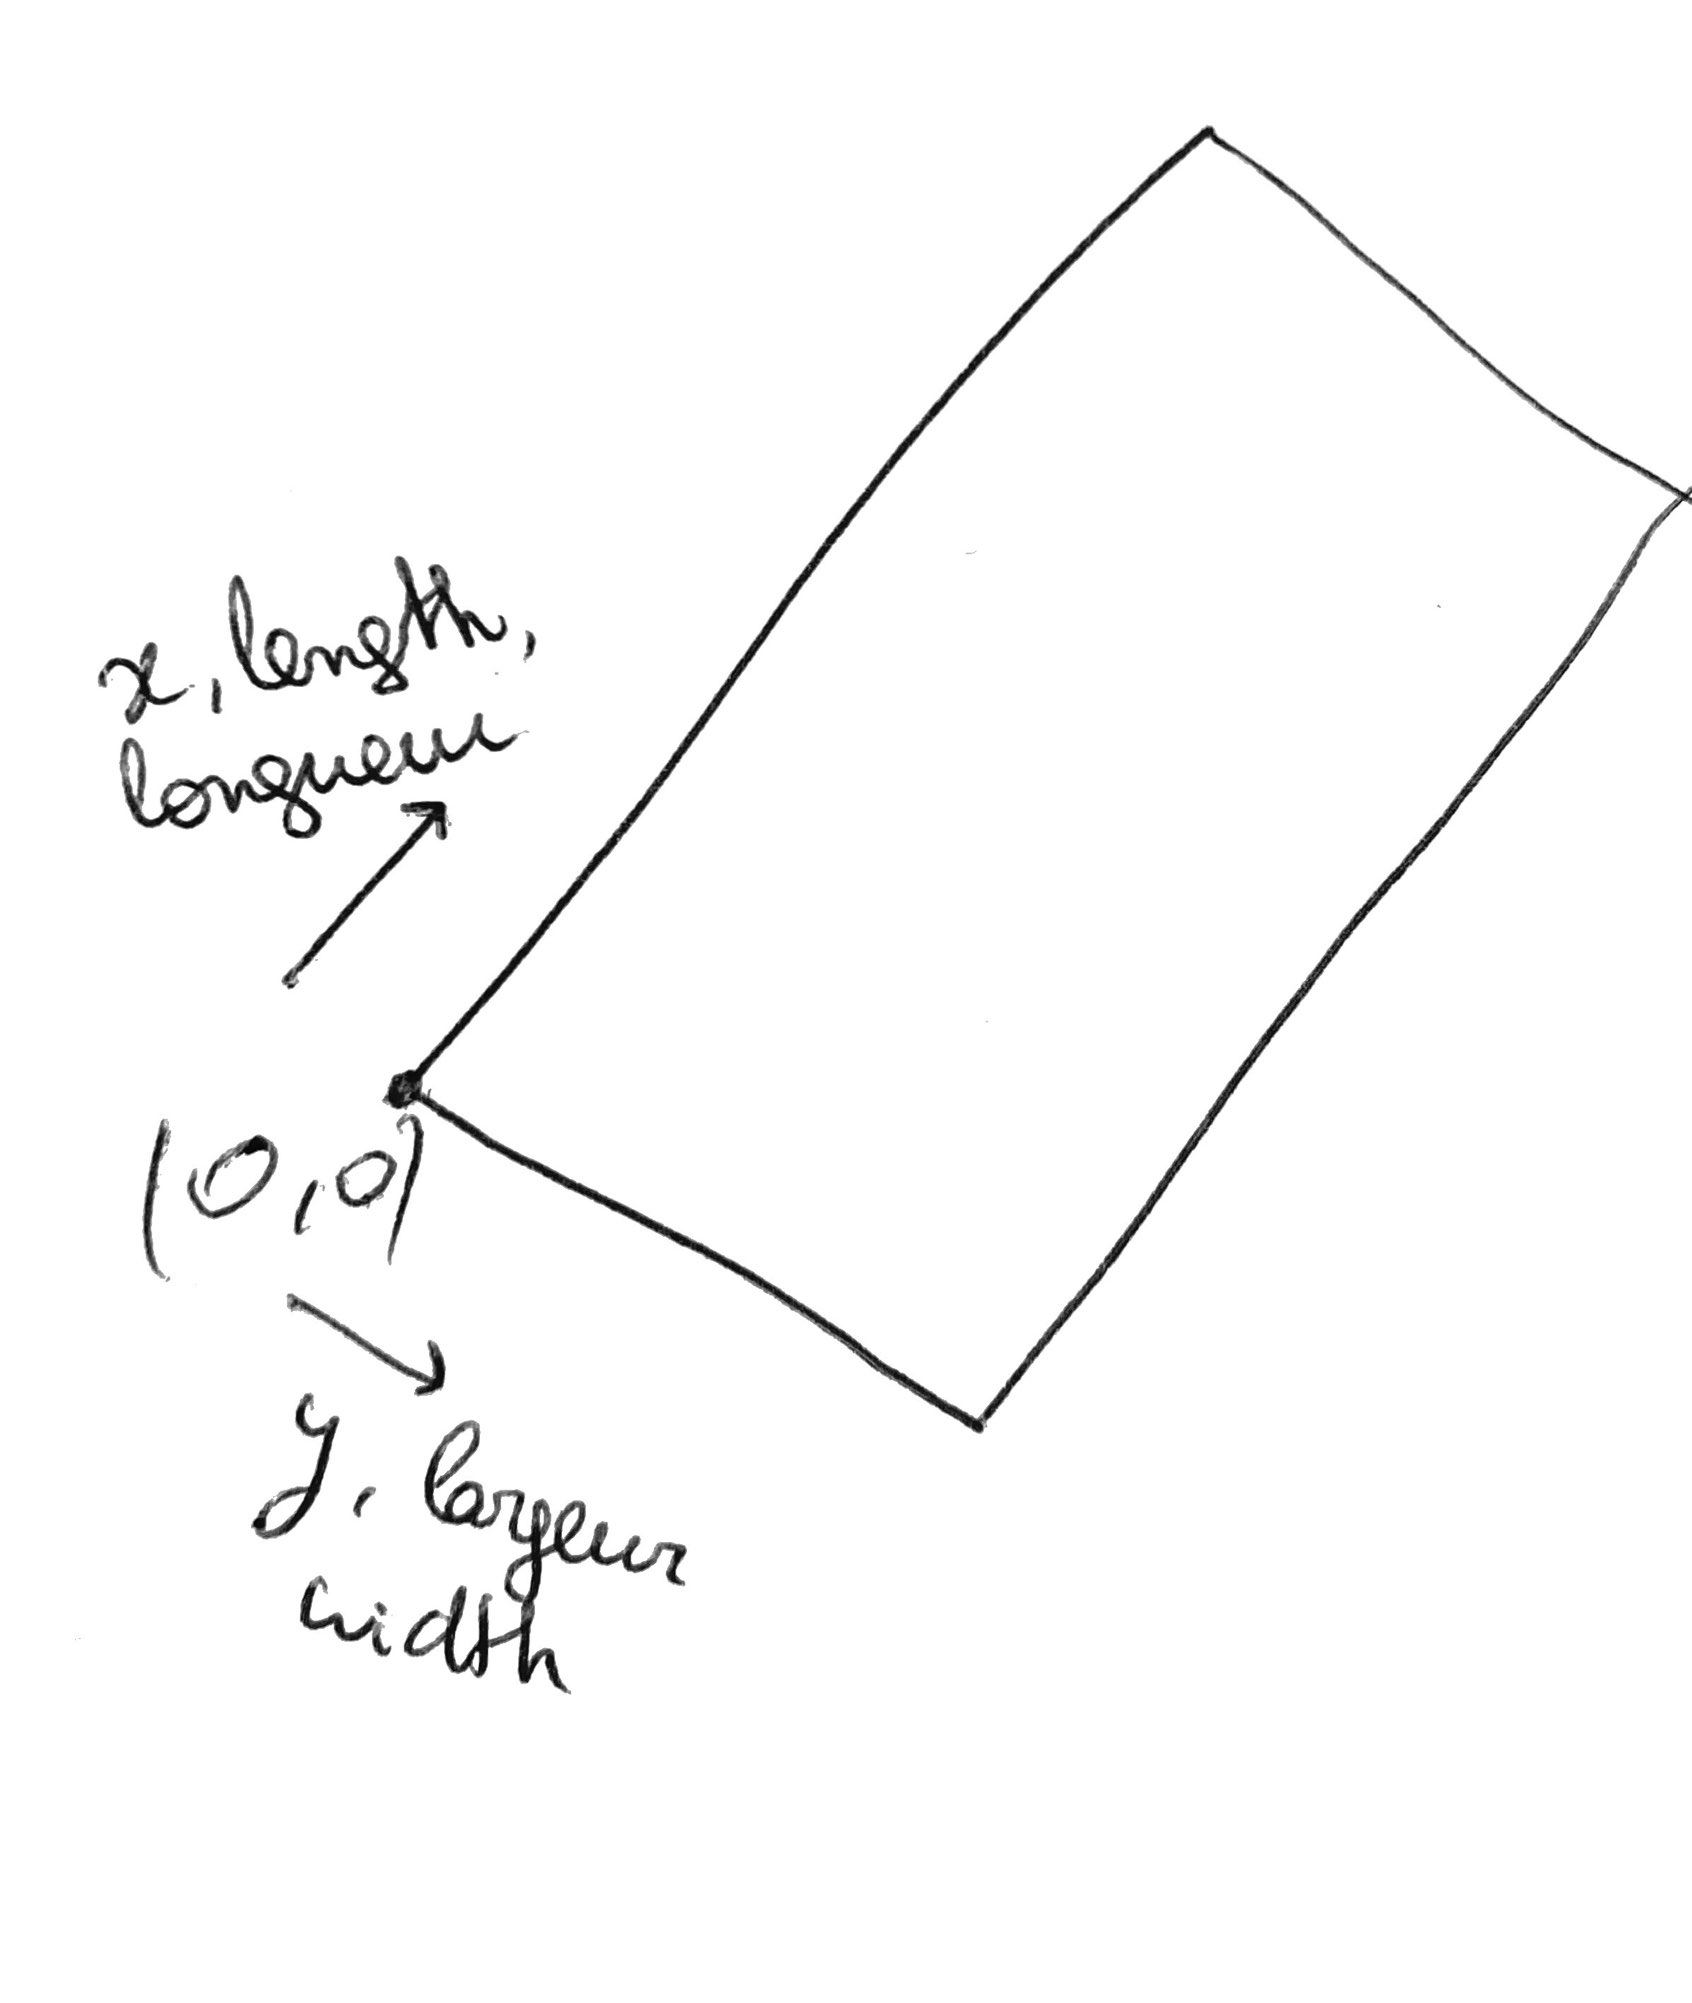 x, length,
longueur
(0,0)
y, largeur
width